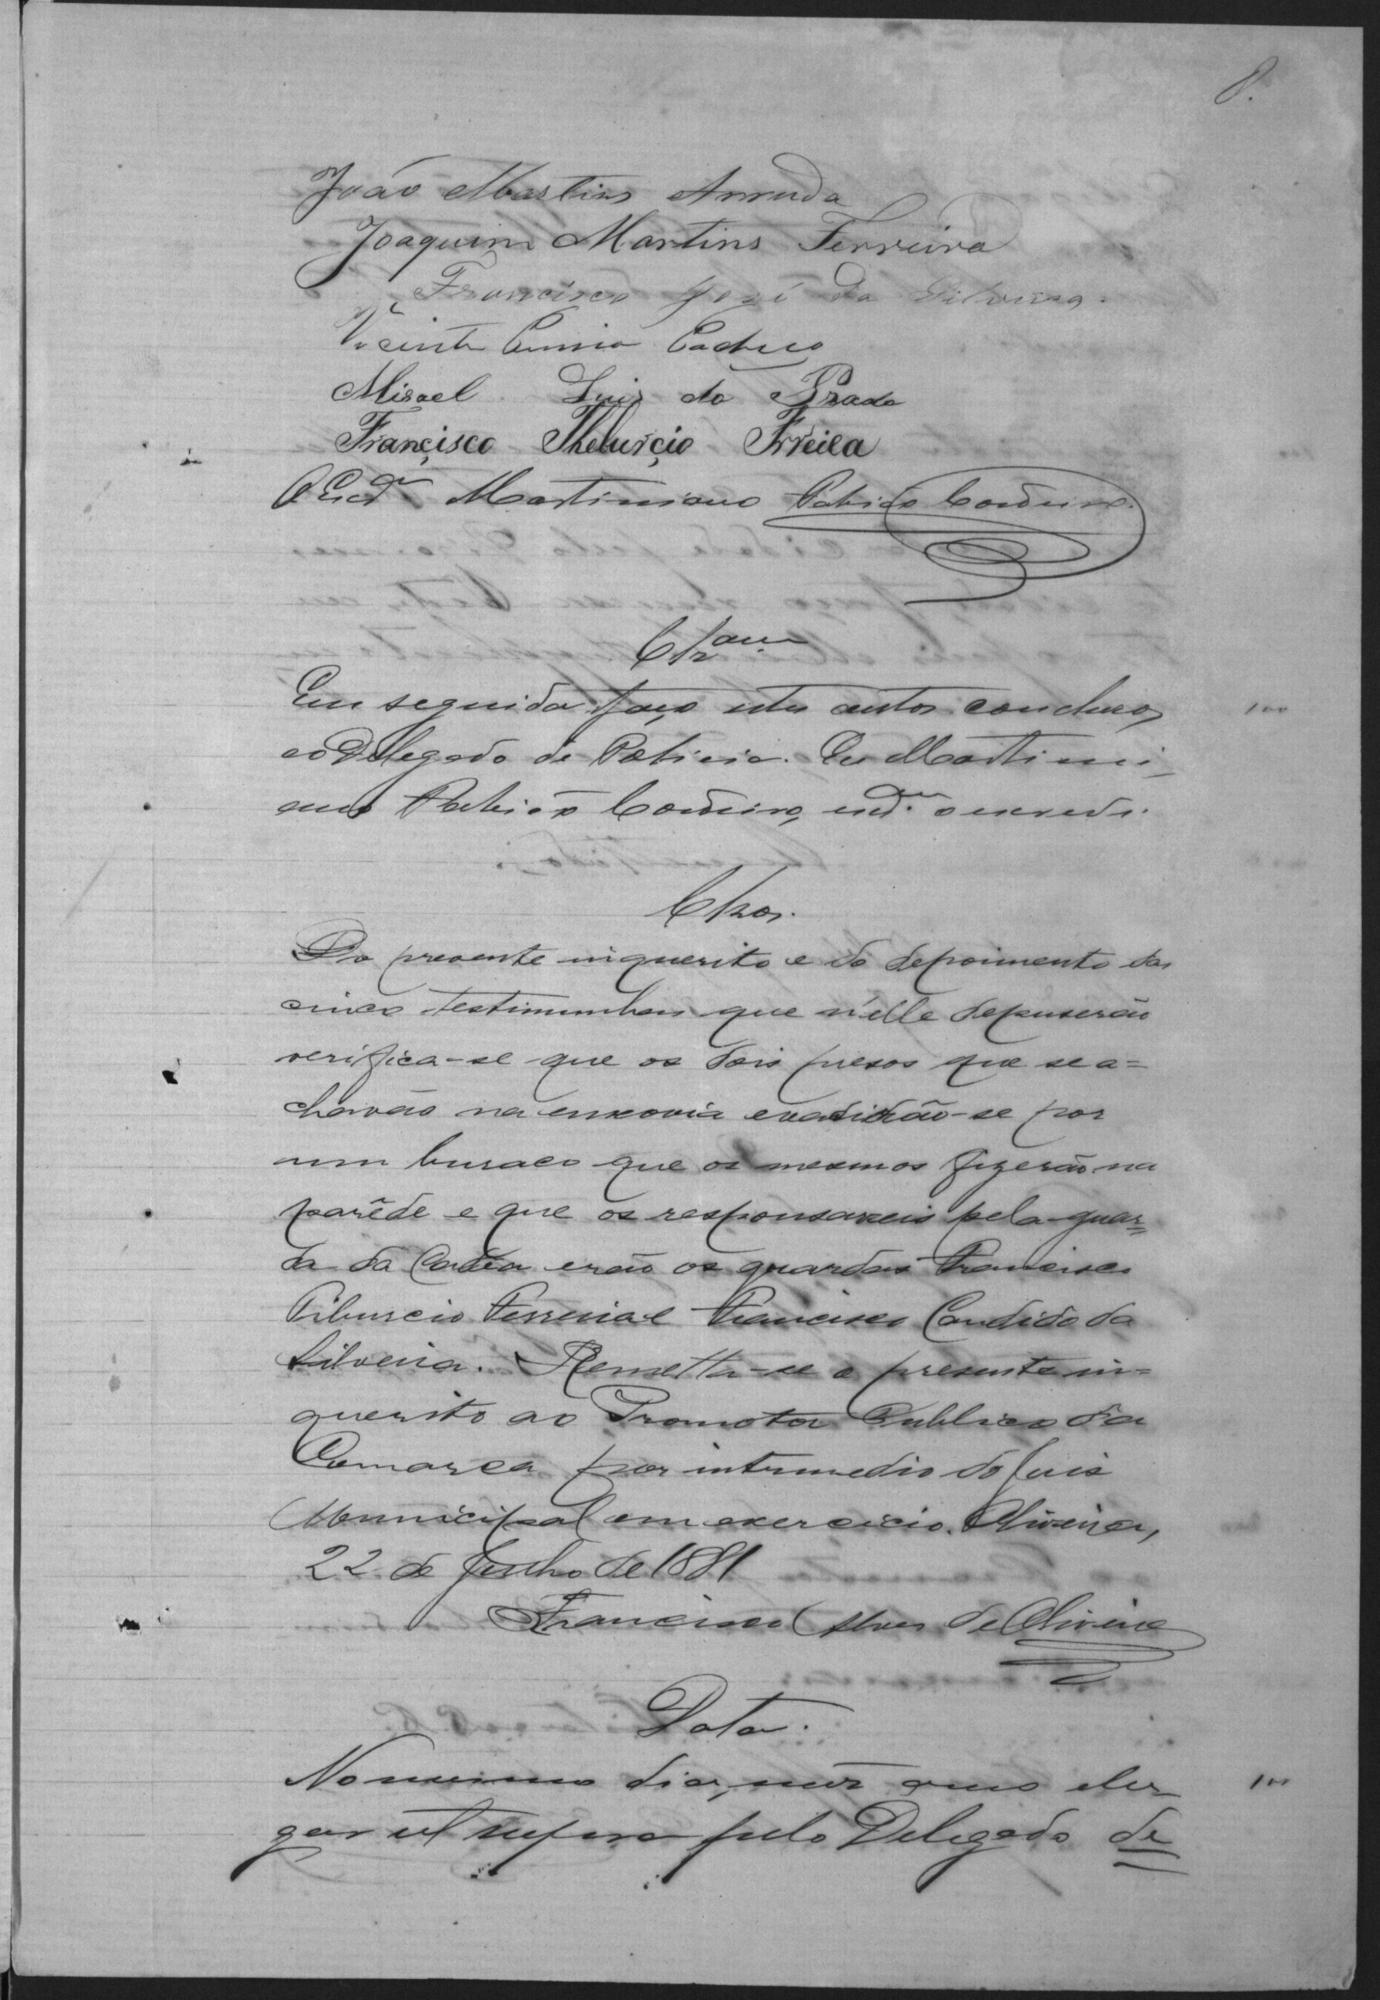 8.
João Martins Arruda
Joaquim Martins Ferreira
Francisco José da Silveira.
Vicente Pacheco
Misael Luis do Prado
Françisco Theburçio Frreira
O Escr.am Martiniano Patricio Cordeiro.
Clzam
Em seguida faço estes autos concluso,
ao Delegado de Policia. Eu Martini-
ano Patricio Cordeiro, escr.am o escrevi.
100
Clzos.
Do presente inquerito e do depoimento das
cinco testimunhas que n'elle depuserão
verifica-se que os dois presos que se a=
chavão na enxovia evadirão-se por
um buraco que os mesmos fizerão na
parêde e que os responsaveis pela guar=
da da Cadêa erão os guardas Francisco
Tiburcio Ferreira e Francisco Candido da
Silveira. Remetta-se o presente in=
querito ao Promotor Publico da
Comarca por intermedio do Juis
Municipal em exercicio. Oliveira,
22 de Julho de 1881
Francisco Alves de Oliveira
Data.
No mesmo dia, mes anno e lu-
gar supra pelo Delegado de
100